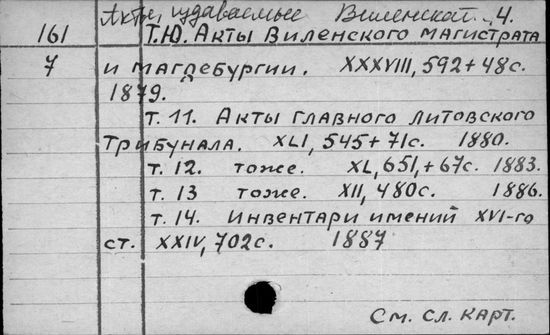 Акты, издаваемые Виленской. 4.
161 Т.Ю. Акты Виленского магистрата
7 и магдебургии. XXXVIII, 592 + 48 с.
1879.
т. 11. Акты главного литовского
трибунала. XLI, 545 + 71 с. 1880.
т. 12. тоже. XL, 651, + 67 с. 1883.
т. 13 тоже. XII, 480 с. 1886.
т. 14. Инвентари имений XVI-го
ст. XXIV, 702 с. 1887
См. сл. карт.